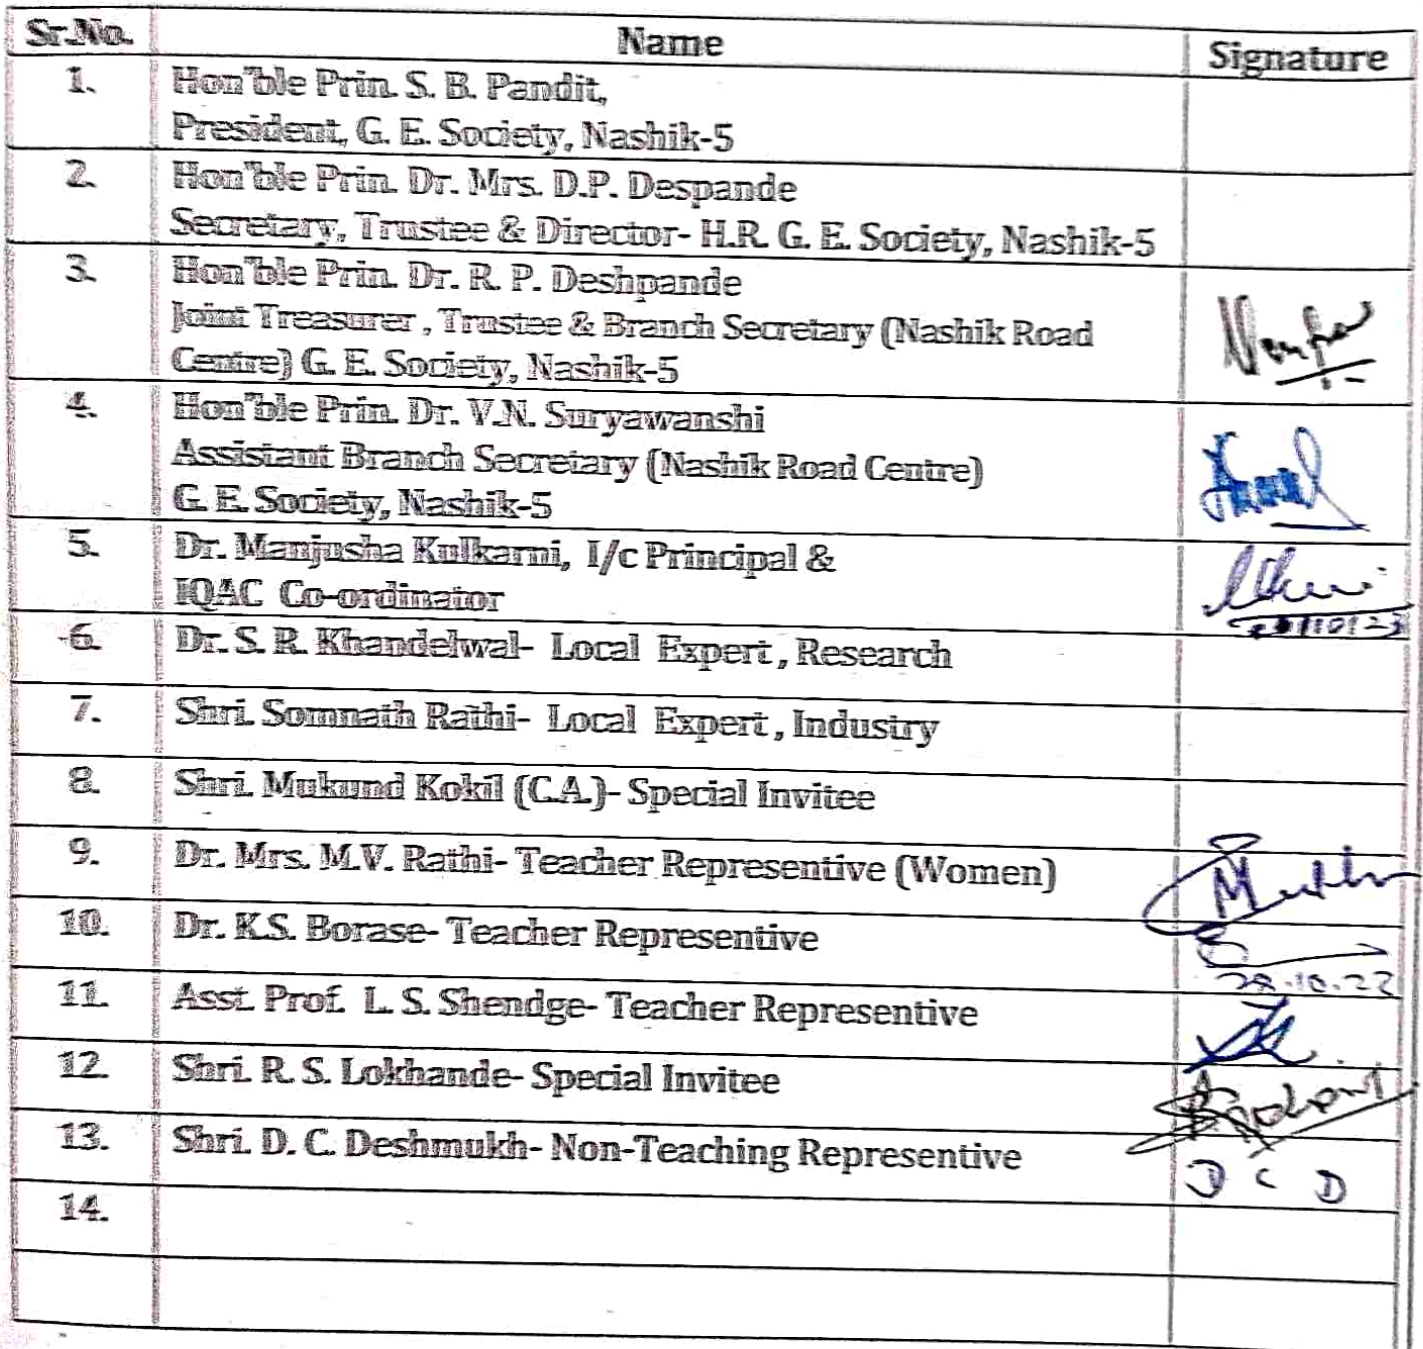 Sr.No. Name Signature
1. Hon'ble Prin. S. B. Pandit,
President, G. E. Society, Nashik-5
2. Hon'ble Prin. Dr. Mrs. D.P. Despande
Secretary, Trustee & Director- H.R. G. E. Society, Nashik-5
3. Hon'ble Prin. Dr. R. P. Deshpande
Joint Treasurer , Trustee & Branch Secretary (Nashik Road
Centre) G. E. Society, Nashik-5
4. Hon'ble Prin. Dr. V.N. Suryawanshi
Assistant Branch Secretary (Nashik Road Centre)
G. E. Society, Nashik-5
5. Dr. Manjusha Kulkarni, I/c Principal &
IQAC Co-ordinator
6. Dr. S. R. Khandelwal- Local Expert , Research
7. Shri. Somnath Rathi- Local Expert , Industry
8. Shri. Mukund Kokil (C.A.)- Special Invitee
9. Dr. Mrs. M.V. Rathi- Teacher Representive (Women)
10. Dr. K.S. Borase- Teacher Representive
28.10.23
11. Asst. Prof. L. S. Shendge- Teacher Representive
12. Shri. R. S. Lokhande- Special Invitee
13. Shri. D. C. Deshmukh- Non-Teaching Representive D C D
14.